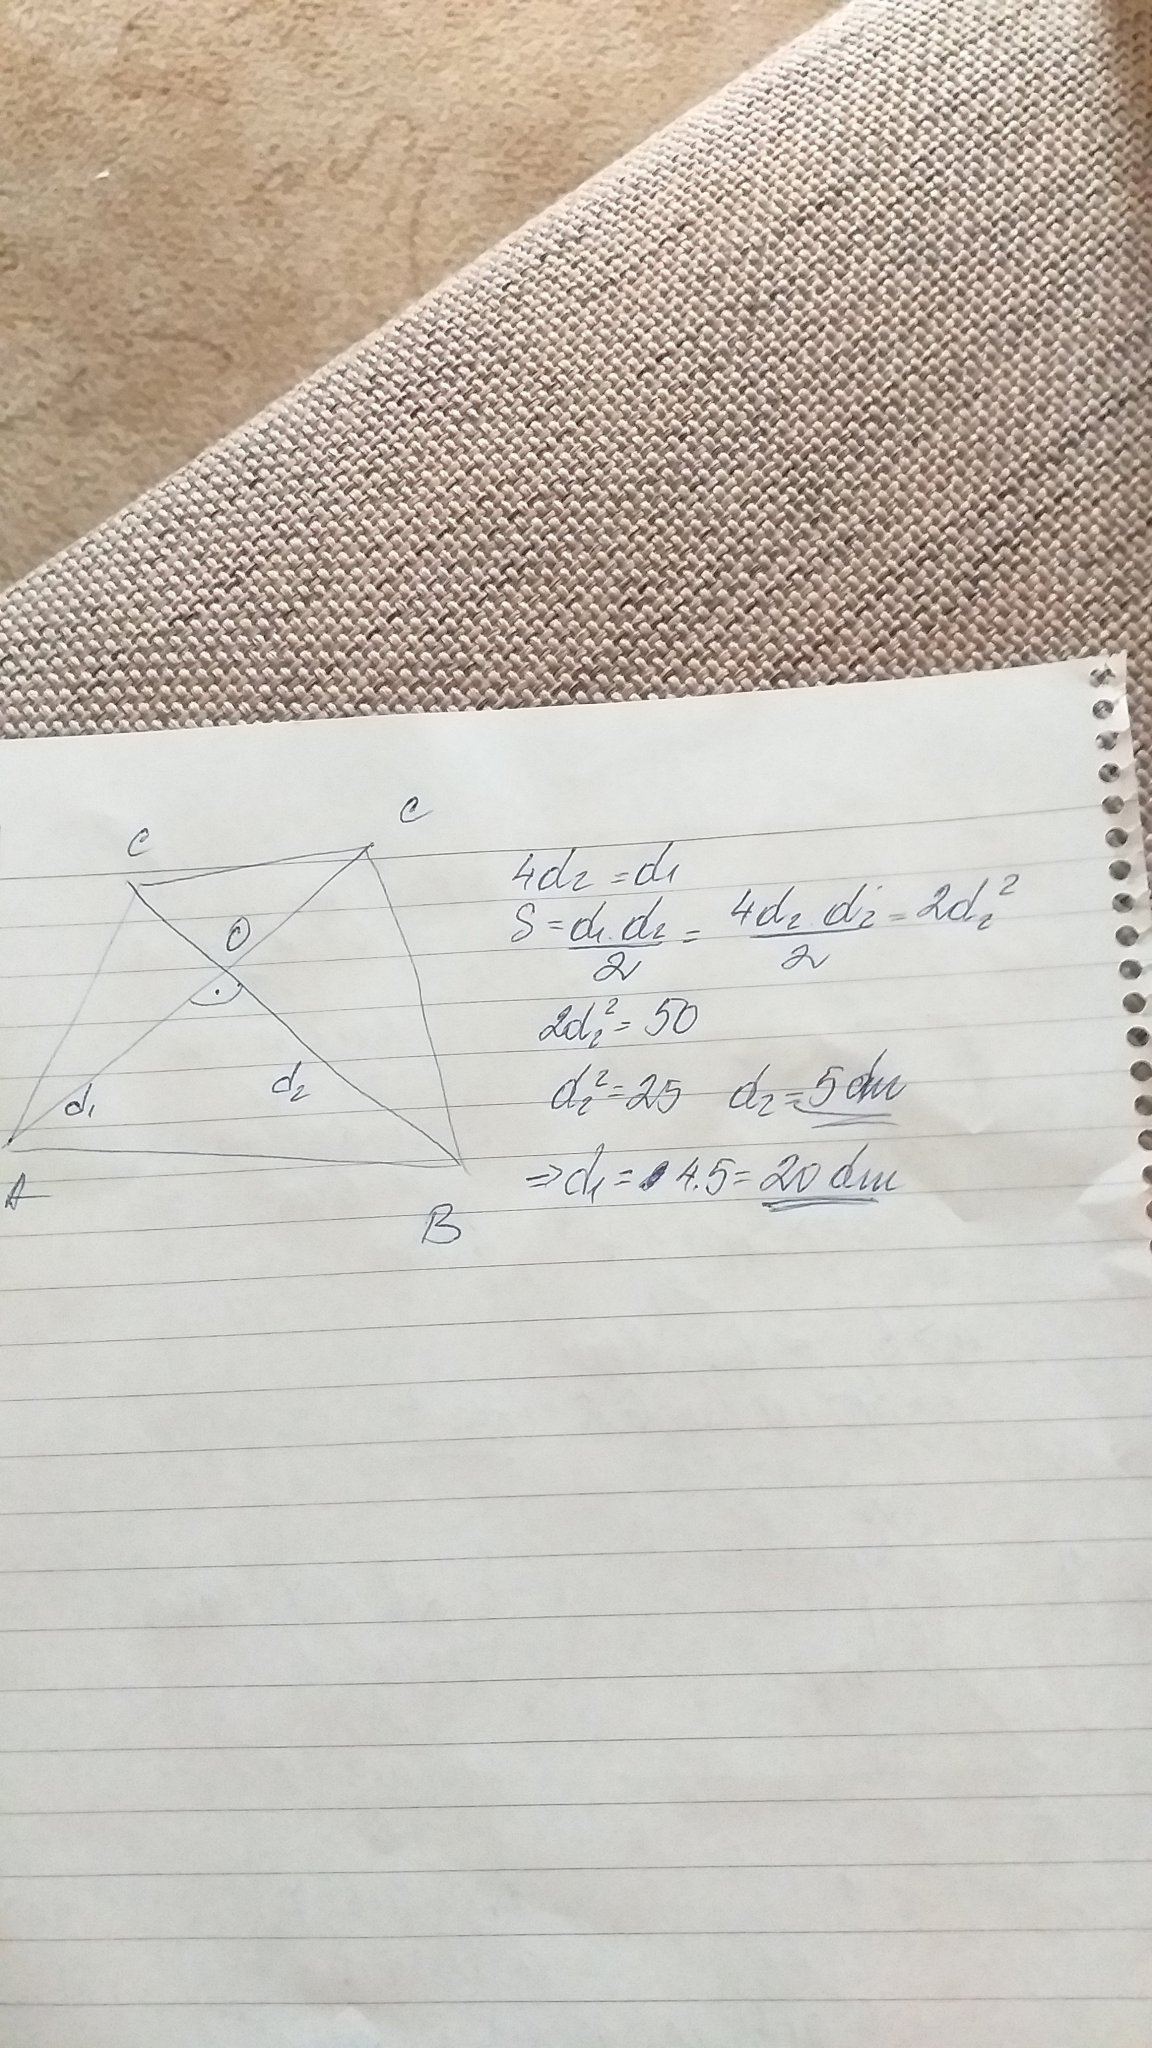 C
C
O
d₁
d₂
A
B
4d₂ = d₁
S = d₁.d₂/2 = 4d₂.d₂/2 = 2d₂²
2d₂² = 50
d₂² = 25 d₂ = 5 dm
⇒ d₁ = 4.5 = 20 dm